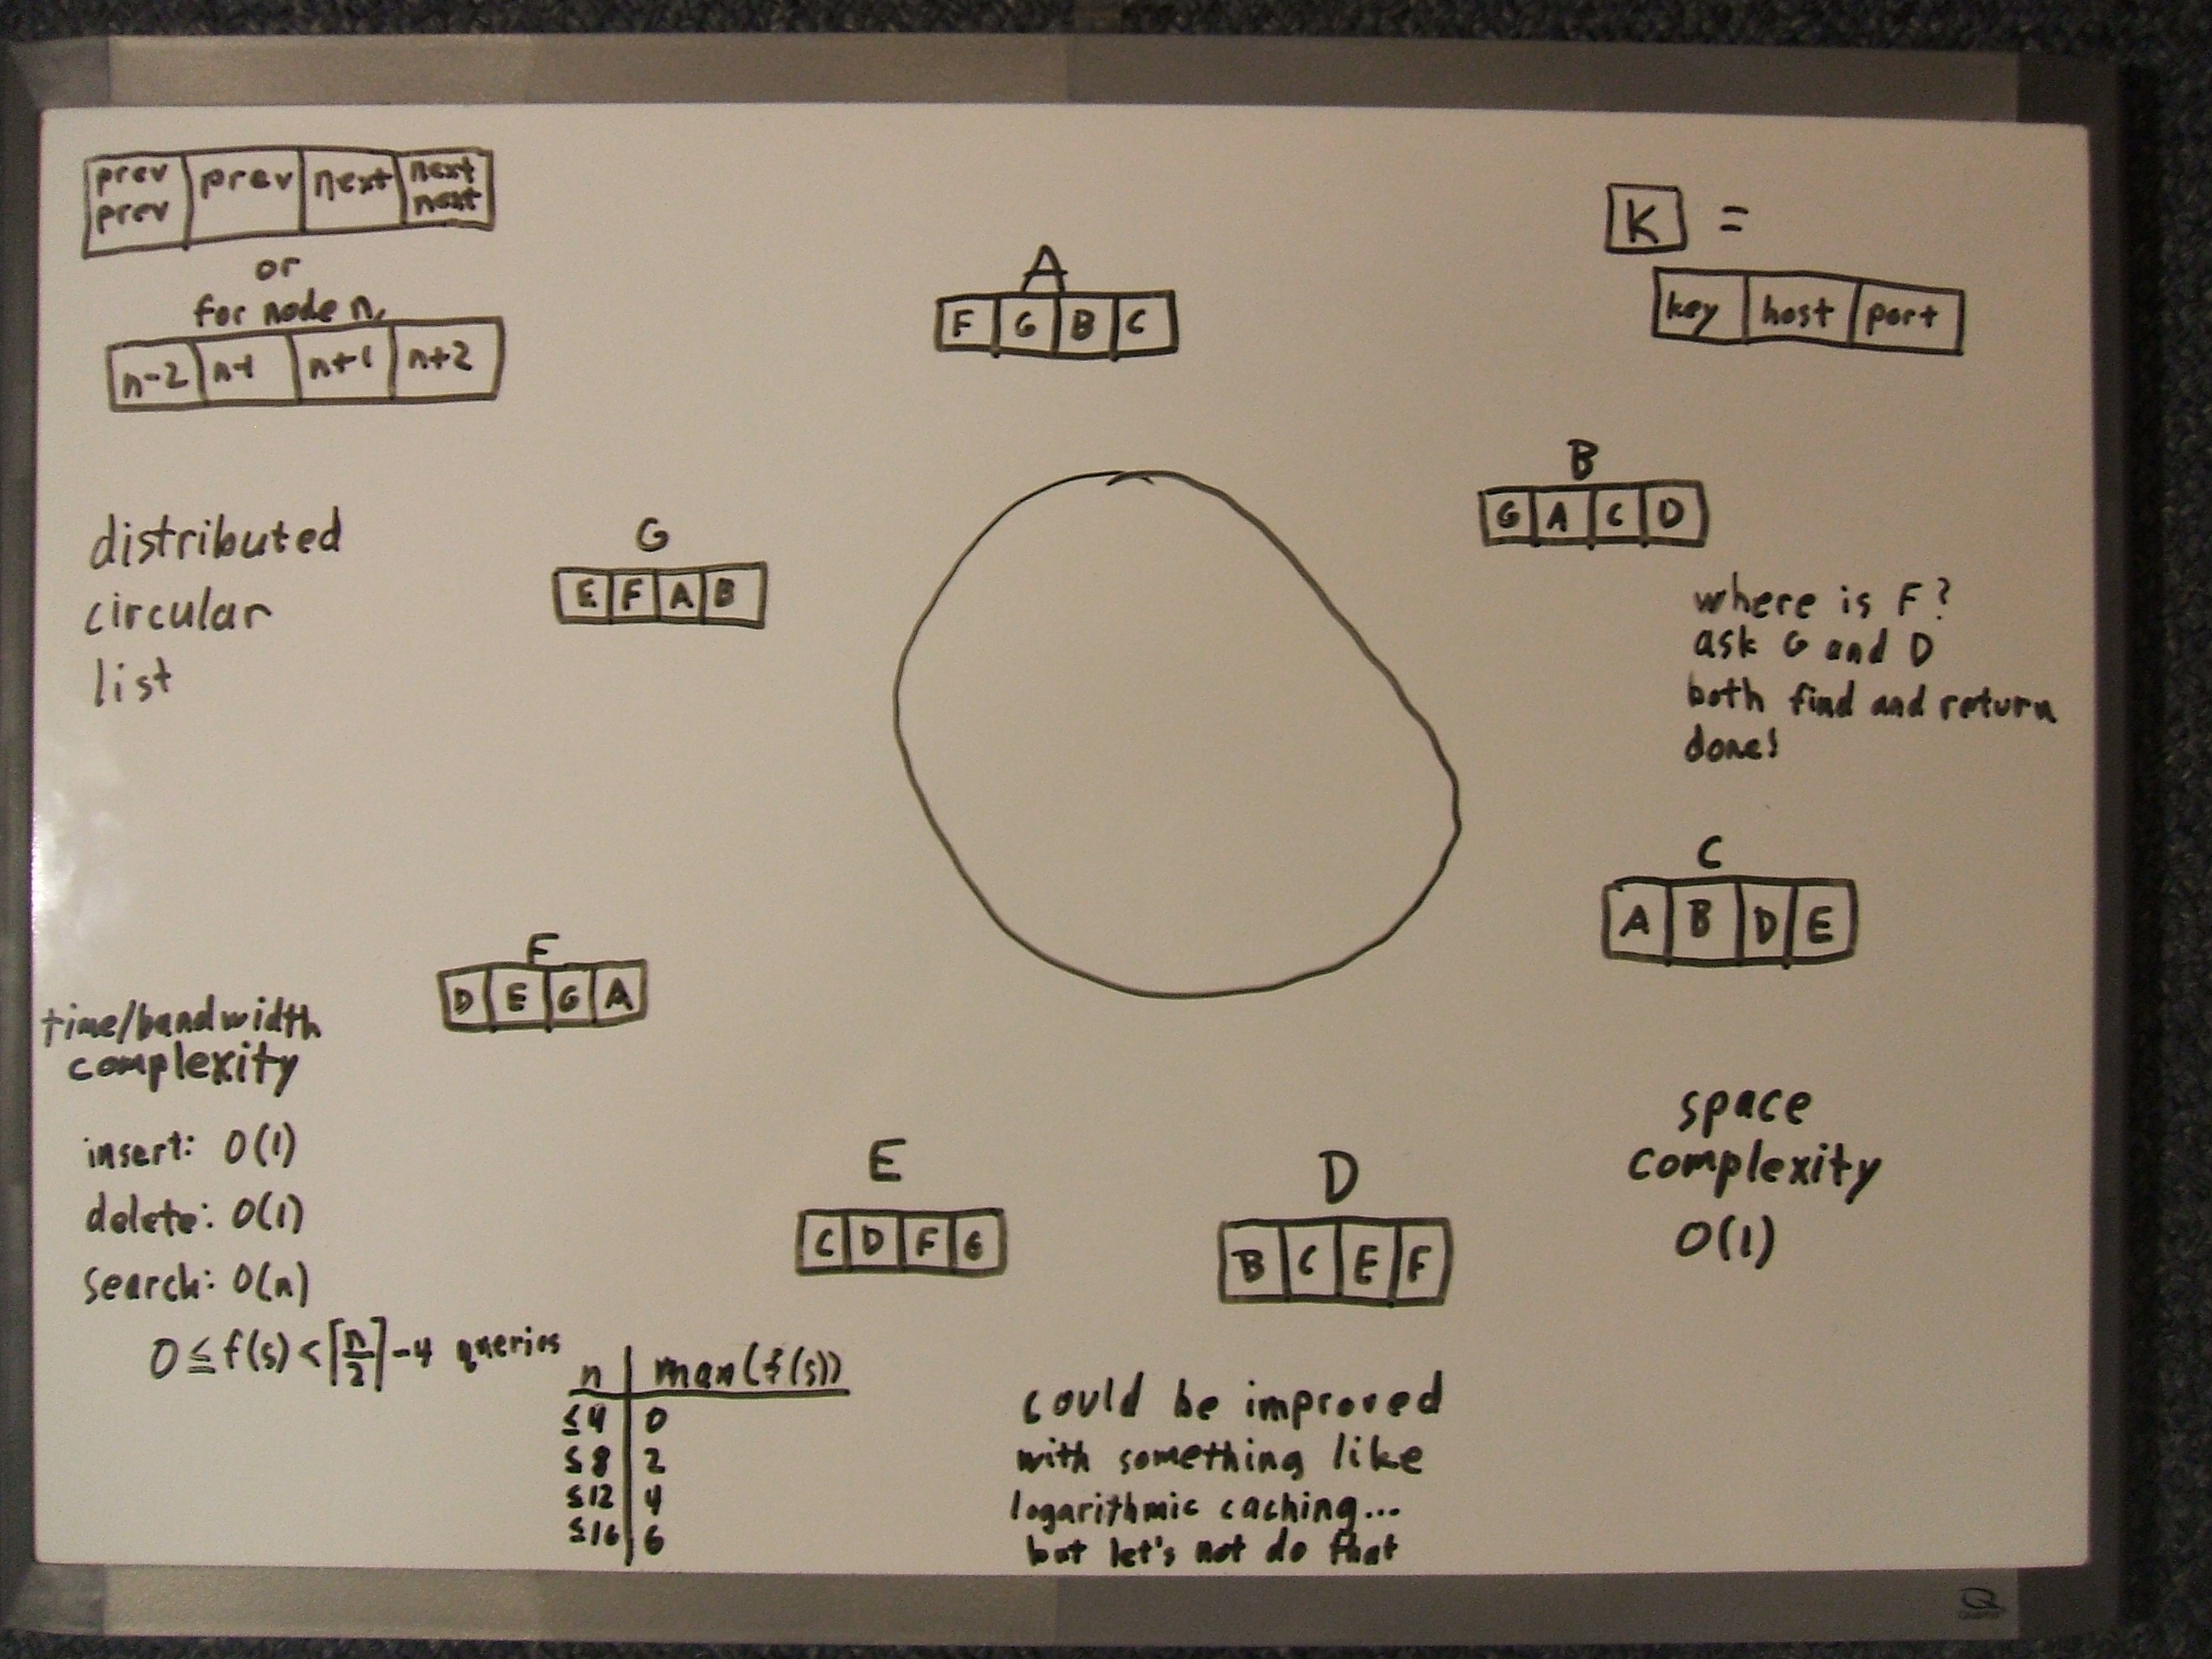 prev prev | prev | next | next next
or
for node n,
n-2 | n-1 | n+1 | n+2
K =
key | host | port
A
F | G | B | C
B
G | A | C | D
where is F?
ask G and D
both find and return
done!
distributed
circular
list
G
E | F | A | B
C
A | B | D | E
F
D | E | G | A
time/bandwidth
complexity
insert: O(1)
delete: O(1)
search: O(n)
0 ≤ f(s) < ⌈n/2⌉ -4 queries
n | max(f(s))
≤4 | 0
≤8 | 2
≤12 | 4
≤16 | 6
E
C | D | F | G
D
B | C | E | F
space
complexity
O(1)
could be improved
with something like
logarithmic caching...
but let's not do that